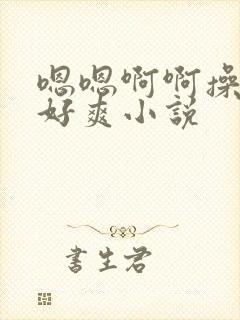 嗯嗯啊啊操
好爽小说
书生君